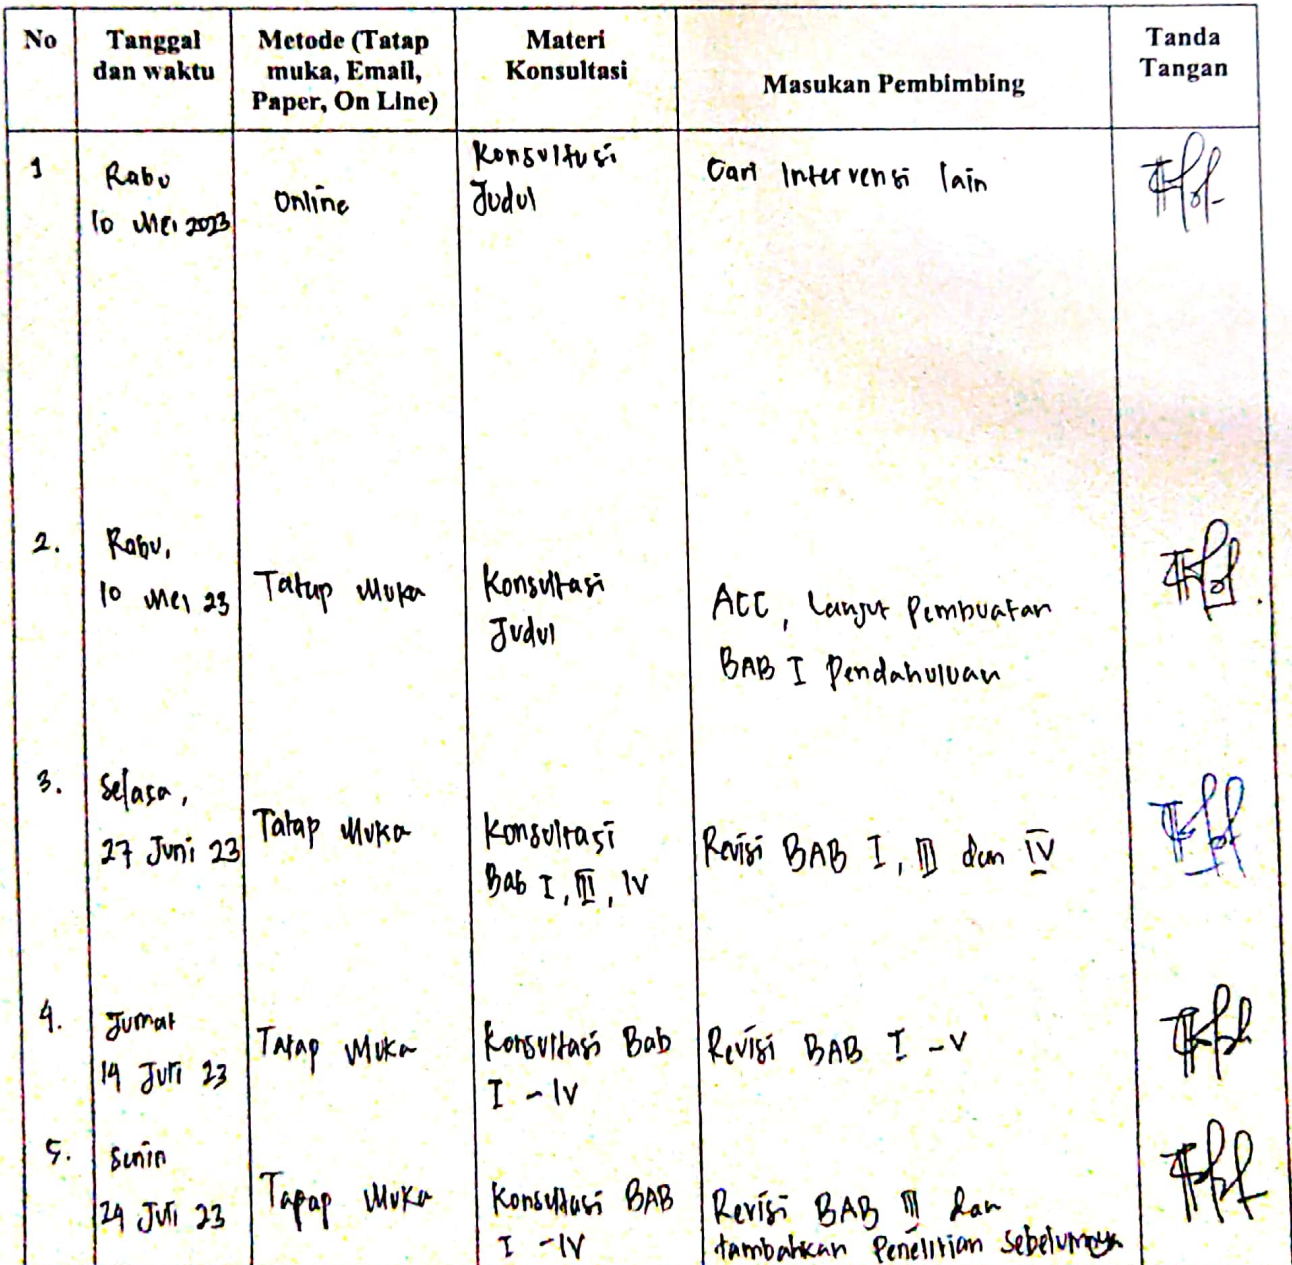 No
Tanggal
dan waktu
Metode (Tatap
muka, Email,
Paper, On Line)
Materi
Konsultasi
Masukan Pembimbing
Tanda
Tangan
1
Rabu
10 Mei 2023
Online
Konsultasi
Judul
Cari Intervensi lain
2.
Rabu,
10 Mei 23
Tatap Muka
Konsultasi
Judul
ACC, Lanjut Pembuatan
BAB I Pendahuluan
3.
Selasa,
27 Juni 23
Tatap Muka
Konsultasi
Bab I, III, IV
Revisi BAB I, III dan IV
4.
Jumat
14 Juli 23
Tatap Muka
Konsultasi Bab
I - IV
Revisi BAB I - V
5.
Senin
24 Juli 23
Tapap Muka
Konsultasi BAB
I - IV
Revisi BAB III dan
tambahkan Penelitian sebelumnya